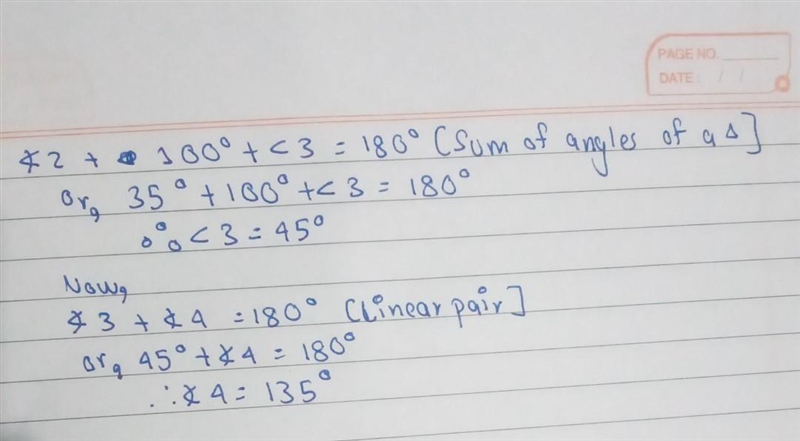 PAGE NO.
DATE: / /
∡2 + 100° + <3 = 180° (Sum of angles of a Δ]
Or, 35° + 100° + <3 = 180°
∴ <3 = 45°
Now,
∡3 + ∡4 = 180° (Linear pair]
or, 45° + ∡4 = 180°
∴ ∡4 = 135°